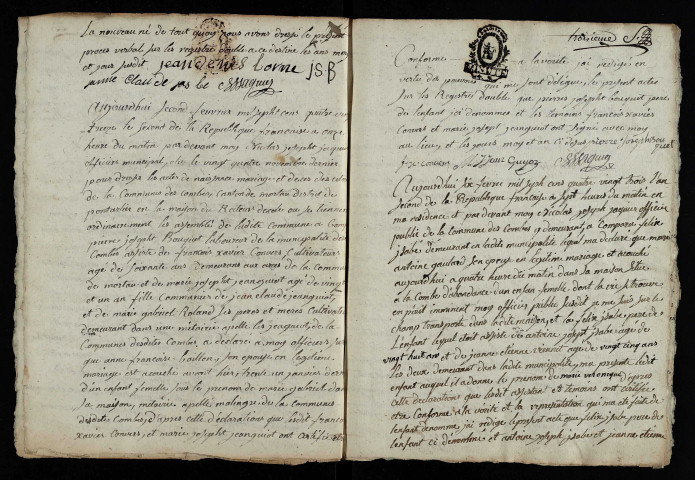 La nouveau né de tout quoy nous avons dressé le présent
proces verbal sur les registre double a ce destiné les ans mois
et jours susdit jean denis borne J S B
jeanne Claude
Aujourdhuy Second fevrier mil sept cens quatre vingt
treize le second de la Republique francaise a onze
heure du matin par devant moy Nicolas joseph jacques
officier municipal, élu le vingt quatre novembre dernier
pour dresser les actes de naissance mariage et deces des citoyens
de la Commune des Combes Canton de mortau District de
pontarlier en la maison du Recteur decole ou se tiennent
ordinairement les assemblés de ladite commune a Comparu
pierre joseph Bouquet laboureur de la municipalité des
Combes assisté de francois xavier Convers Cultivateur
agé de soixante ans demeurant aux arces de la Commune
de mortau et de marie josephe jeanguiot agé de vingt
et un an fille Communier de jean claude jeanguiot
et de marie gabriel Roland ses peres et meres Cultivateur
demeurant dans une métairie apellé les jeanguiot de la
Commune desdites Combes a déclaré a moy officier, sus
que anne francoise Guillon, son épouse en legitime
mariage est accouché avant hier trente un janvier dernier
d'un enfant femelle sous le prenom de marie gabriel dans
sa maison, métairie apellé de la commune
desdits Combes d'apres cette déclarations que ledit francois
xavier Convers et marie josephe jeanguiot ont certifié
troisieme
Conforme a la verité jai redigé en
vertu des pouvoirs qui me sont délégué, le present acte
sur les Registres Double que pierre joseph bouquet pere
de lenfant ici dénommés et les témoins francois xavier
Convers et marie joseph jeanguiot ont signés avec moy
au lieu, et jours moy et an ci dessus pierre joseph bouquet
Aujourdhuy six fevrier mil sept cens quatre vingt trois l'an
second de la Republique francaise a sept heures du matin en
ma residence et par devant moy Nicolas joseph jacques officier
publié de la commune des Combes y demeurant a Comparu felix
jsabé demeurant en ladite municipalité lequel ma déclaré que marie
antoine gaulard son epouse en légitime mariage est accouché
aujourdhui a quatre heure du matin dans sa maison située
a la Combe d'abondance d'un enfan femelle dont la vie se trouve
en peril imminent moy officier public susdit je me suis sur le
champ transporté dans ladite maison et la felix jsabé pere de
l'enfant lequel étoit assisté de antoine joseph jsabé agé de
vingt huit ans et du jeanne etienne agée de vingt cinq ans
les deux demeurant dans ladite municipalité, ma presenté ledit
enfant auquel il a donné le prenom de marie veronique d'apres
cette déclaration que ledit assistant et témoins ont certifiée
etre conforme a la verité et la representation qui ma été faite de
lenfant denommé, jai redigé le present acte que felix jsabé pere de
lenfant ci dénommé et antoine joseph jsabé et jeanne etienne